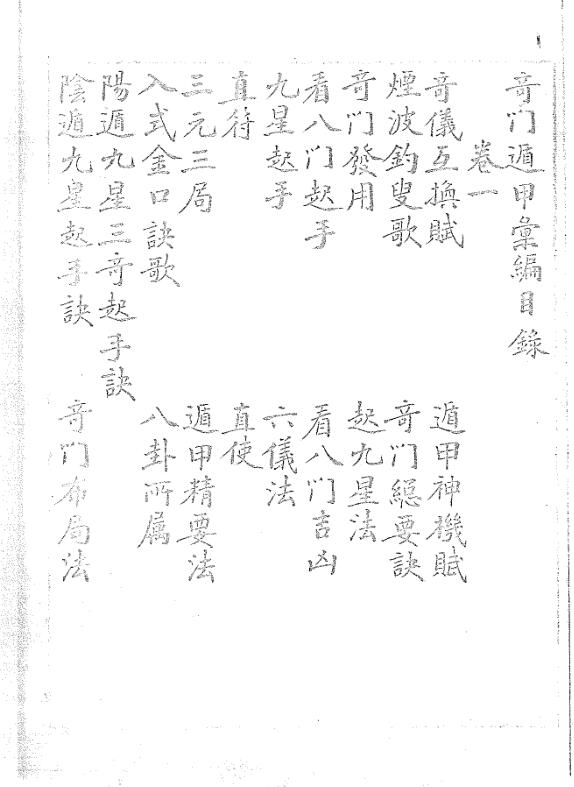 1
奇門遁甲彙編目錄
卷一
奇儀互換賦
遁甲神機賦
煙波釣叟歌
奇門緫要訣
奇門發用
起九星法
看八門起手
看八門吉凶
九星起手
六儀法
直符
直使
三元三局
遁甲精要法
入式金口訣歌
八卦所属
陽遁九星三奇起手訣
陰遁九星起手訣
奇門布局法